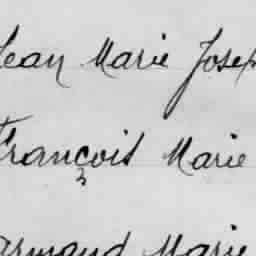 Jean Marie Josep
François Marie
Armand Marie